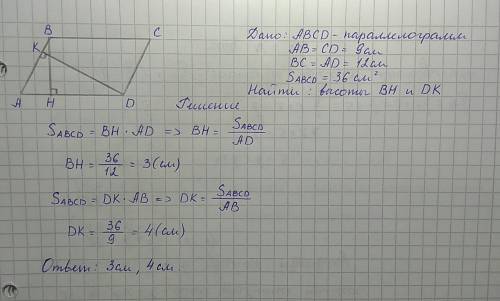 B
C
K
A
H
D
Дано: ABCD - параллелограмм
AB = CD = 9 см
BC = AD = 12 см
SABCD = 36 см²
Найти: высоты BH и DK
Решение
SABCD = BH · AD => BH = SABCD / AD
BH = 36/12 = 3 (см)
SABCD = DK · AB => DK = SABCD / AB
DK = 36/9 = 4 (см)
Ответ: 3 см, 4 см.